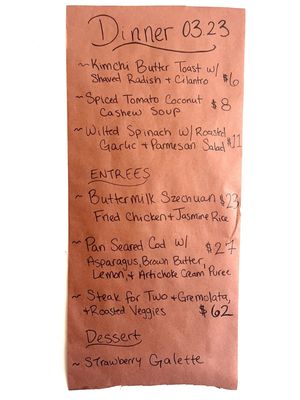 Dinner 03.23
~ Kimchi Butter Toast w/
Shaved Radish + Cilantro $6
~ Spiced Tomato Coconut $8
Cashew Soup
~ Wilted Spinach w/ Roasted
Garlic + Parmesan Salad $11
ENTREES
~ Buttermilk Szechuan $23
Fried Chicken + Jasmine Rice
~ Pan Seared Cod w/ $27
Asparagus, Brown Butter,
Lemon, + Artichoke Cream Puree
~ Steak for Two + Gremolata,
+ Roasted Veggies $62
Dessert
~ Strawberry Galette